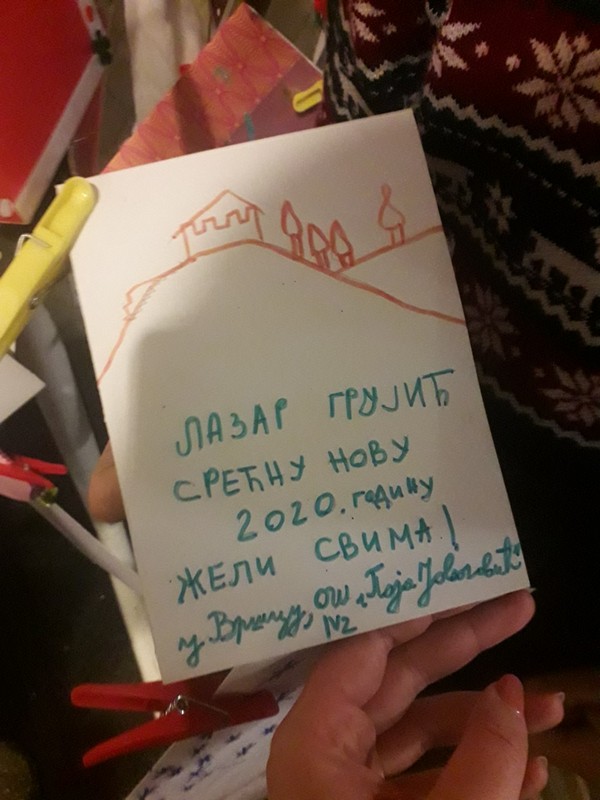 ЛАЗАР ГРУЈИЋ
СРЕЋНУ НОВУ
2020. годину
ЖЕЛИ СВИМА!
у Вршцу, ОШ „Паја Јовановић“
IV2